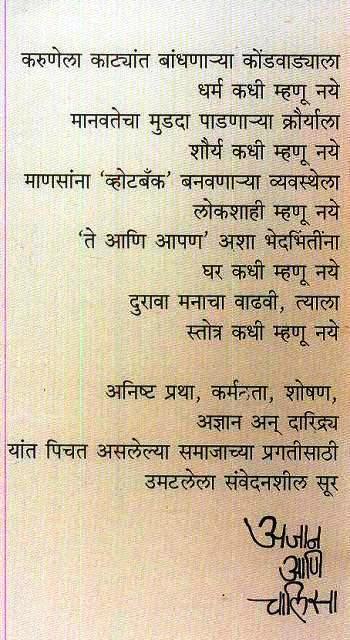 करुणेला काट्यांत बांधणाऱ्या कोंडवाड्याला
धर्म कधी म्हणू नये
मानवतेचा मुडदा पाडणाऱ्या क्रौर्याला
शौर्य कधी म्हणू नये
माणसांना ‘व्होटबँक’ बनवणाऱ्या व्यवस्थेला
लोकशाही म्हणू नये
‘ते आणि आपण’ अशा भेदभिंतींना
घर कधी म्हणू नये
दुरावा मनाचा वाढवी, त्याला
स्तोत्र कधी म्हणू नये
अनिष्ट प्रथा, कर्मठता, शोषण,
अज्ञान अन् दारिद्र्य
यांत पिचत असलेल्या समाजाच्या प्रगतीसाठी
उमटलेला संवेदनशील सूर
अजान
आणि
चालिसा